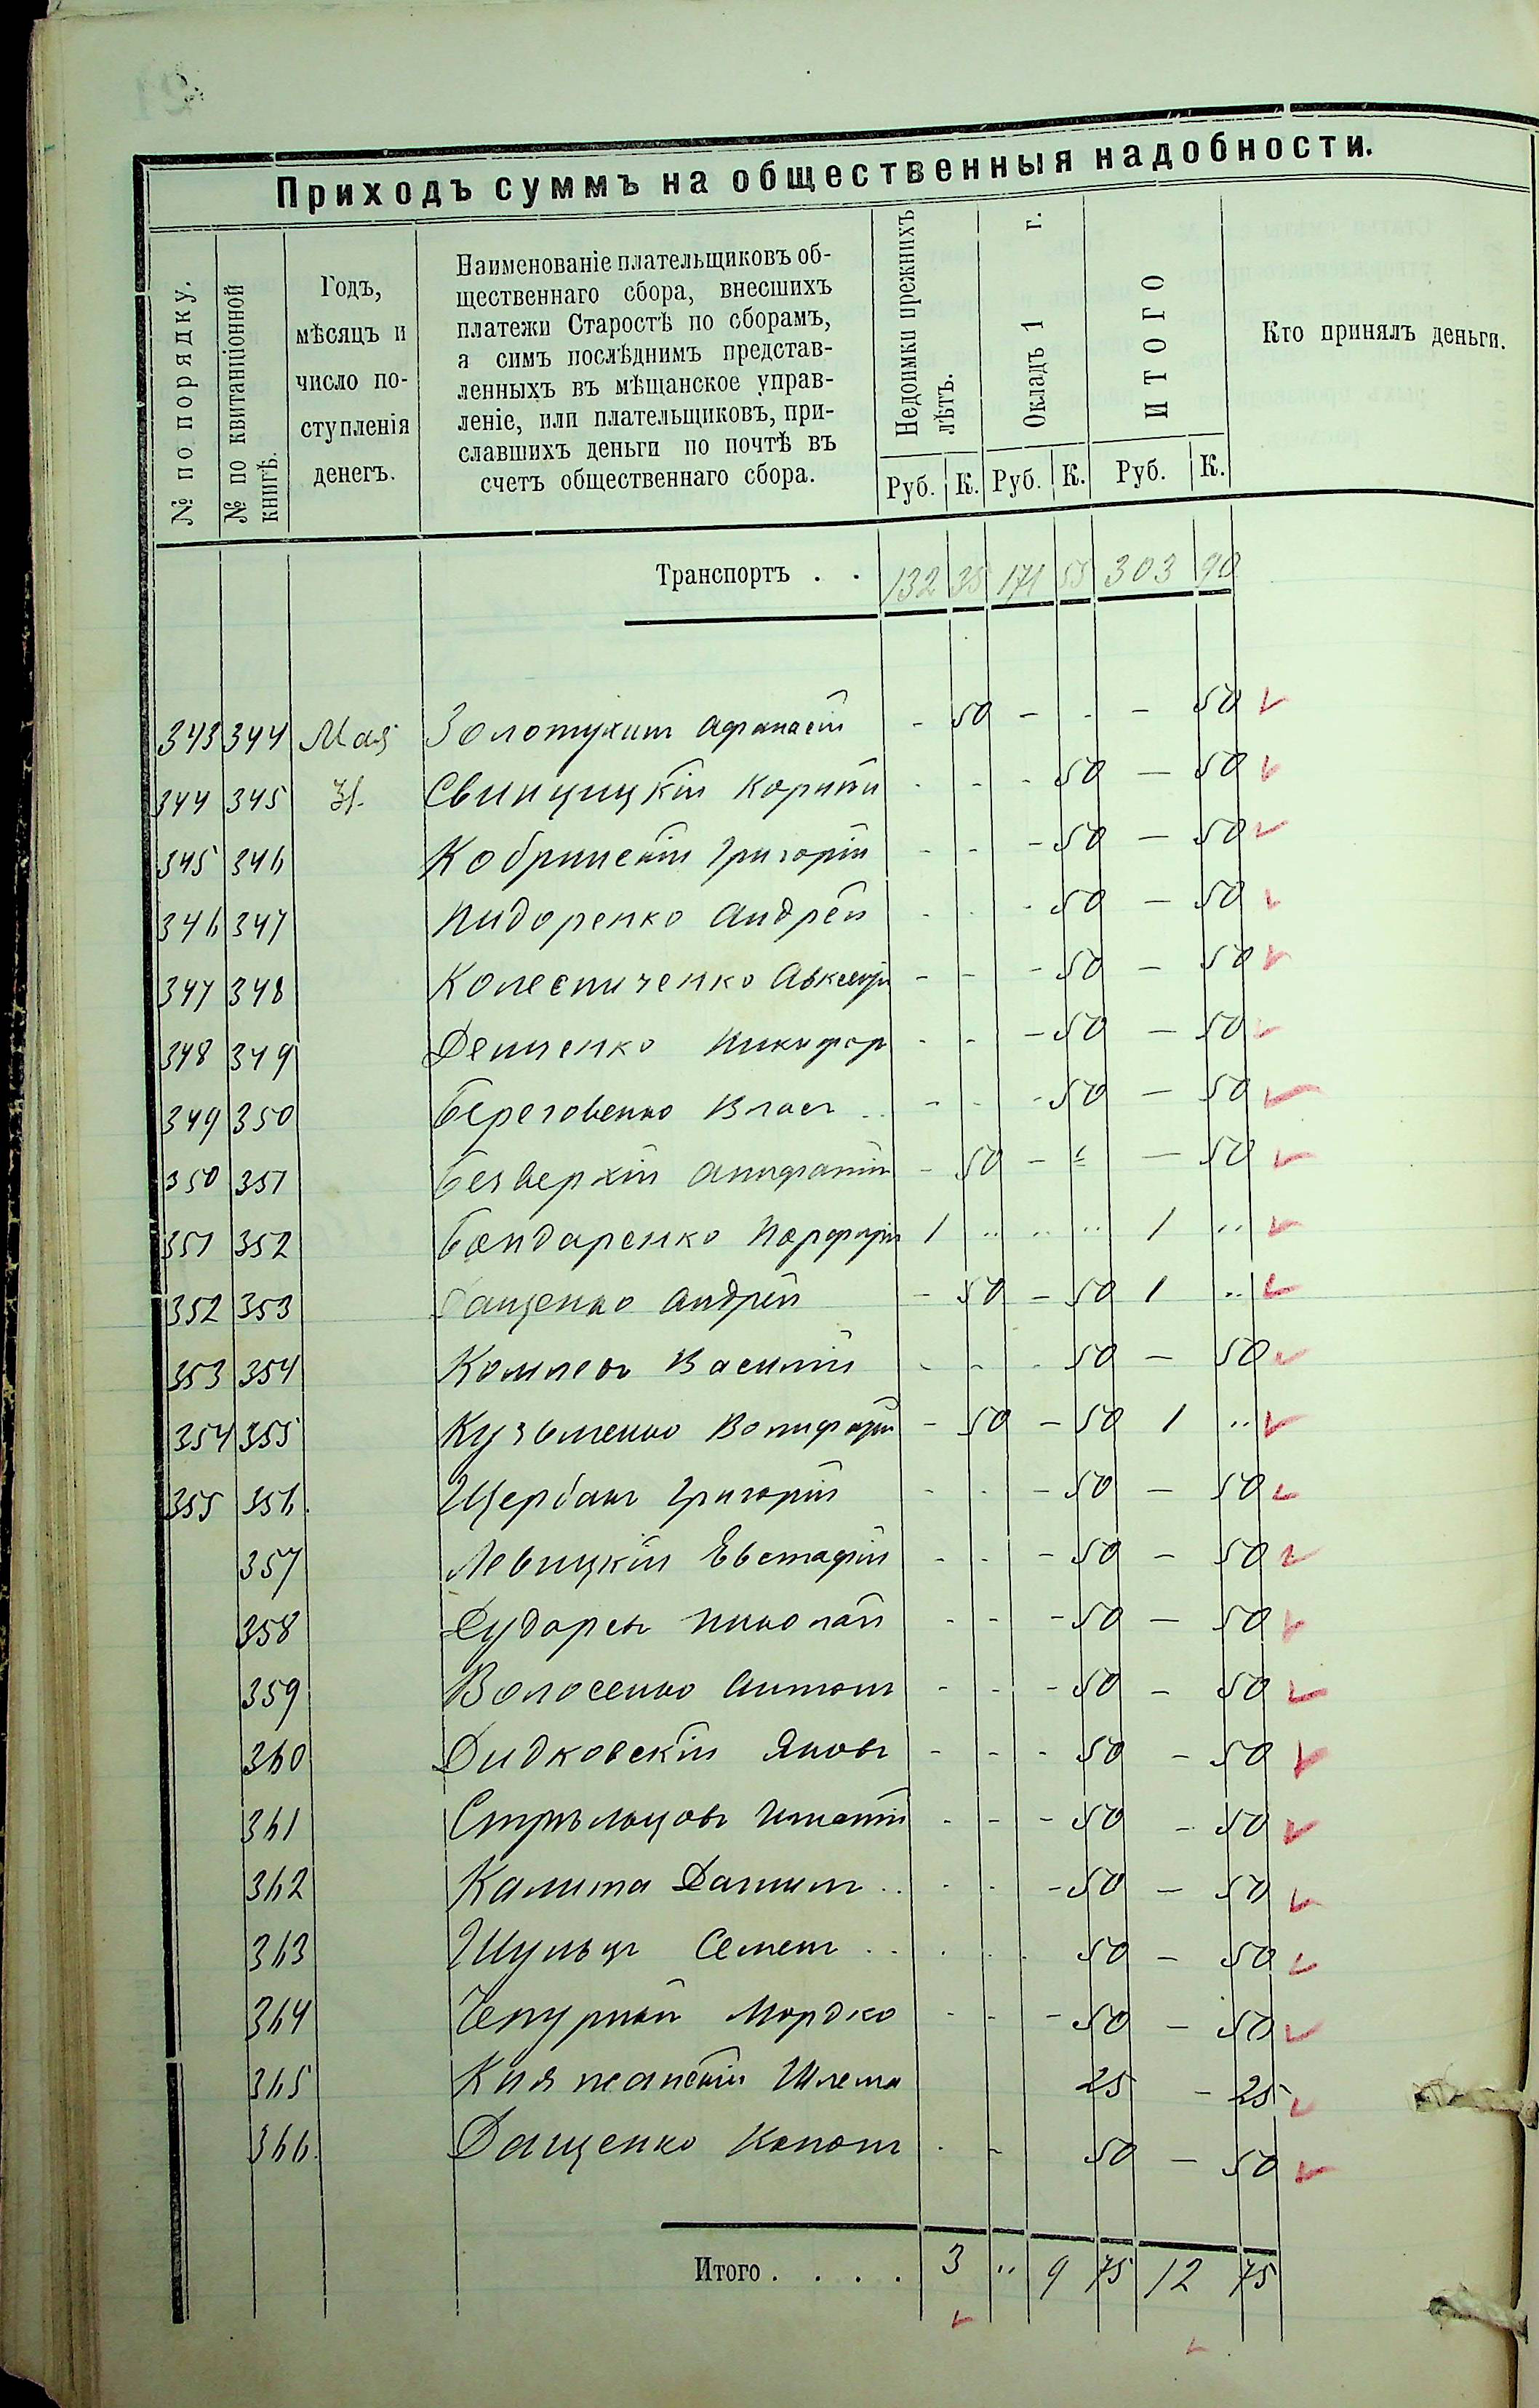 Приходъ суммъ на общественныя надобности.
№ по порядку.
№ по квитанціонной
книгѣ.
Годъ,
мѣсяцъ и
число по-
ступленія
денегъ.
Наименованіе плательщиковъ об-
щественнаго сбора, внесшихъ
платежи Старостѣ по сборамъ,
а симъ послѣднимъ представ-
ленныхъ въ мѣщанское управ-
леніе, или плательщиковъ, при-
славшихъ деньги по почтѣ въ
счетъ общественнаго сбора.
Недоимки прежнихъ
лѣтъ.
Окладъ 1 г.
ИТОГО
Кто принялъ деньги.
Руб. К. Руб. К. Руб. К.
Транспортъ . . 132 35 171 55 303 90
343 344 Мая Золотухинъ Афанасій - 50 - - - 50
344 345 31. Свинцицкій - - - 50 - 50
345 346 Кобринскій Григорій - - - 50 - 50
346 347 Пидоренко Андрей - - - 50 - 50
347 348 Колесниченко - - - 50 - 50
348 349 Демченко Никифор - - - 50 - 50
349 350 Береговенко Власъ .. - - - 50 - 50
350 351 Безверхій - 50 - - - 50
351 352 Бондаренко Порфирій 1 .. .. .. 1 ..
352 353 Андрей - 50 - 50 1 ..
353 354 Василій - - - 50 - 50
354 355 Кузьменко - 50 - 50 1 ..
355 356. Щербань Григорій - - - 50 - 50
357 Левицкій Евстафій - - - 50 - 50
358 Николай - - - 50 - 50
359 Волосенко Антонъ - - - 50 - 50
360 Дидковскій Яковъ - - - 50 - 50
361 Стрѣльцовъ Игнатій - - - 50 - 50
362 Калита Даниилъ .. - - - 50 - 50
363 Шульцъ Семенъ .. . .. . 50 - 50
364 Чепурный Мордко - - - 50 - 50
365 Шлема 25 - 25
366. Дащенко Кононъ - - 50 - 50
Итого . . . . 3 .. 9 75 12 75